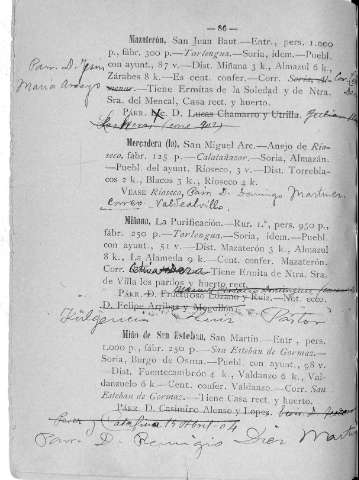 — 86 —
Mazaterón. San Juan Baut.—Entr., pers. 1.000
p., fábr. 300 p.—Torlengua.—Soria, idem.—Puebl.
con ayunt., 87 v.—Dist. Miñana 3 k., Almazul 6 k.,
Zárabes 8 k.—Es cent. confer.—Corr. Soria, Al-
menar.—Tiene Ermitas de la Soledad y de Ntra.
Sra. del Mencal, Casa rect. y huerto.
Parr. D.
María
PÁRR. D. Lucas Chamarro y Utrilla.
Mercadera (la). San Miguel Arc.—Anejo de Rio-
seco, fábr. 125 p.—Calatañazor.—Soria, Almazán.
—Puebl. del ayunt. Rioseco, 3 v.—Dist. Torrebla-
cos 2 k., Blacos 3 k., Rioseco 4 k.
VÉASE Rioseco. Parr. D. Domingo Martínez
Correo Valdealvillo
Miñana, La Purificación.—Rur. 1.ª, pers. 950 p.,
fábr. 250 p.—Torlengua.—Soria, idem.—Puebl.
con ayunt., 51 v.—Dist. Mazaterón 3 k., Almazul
8 k., La Alameda 9 k.—Cent. confer. Mazaterón.
Corr. Tiene Ermita de Ntra. Sra.
de Villa los pardos y huerto rect.
PÁRR. D. Fructuoso Lozano y Ruis.—Not. ecco.
D. Felipe Arribas y Mogollon.
Fulgencio Pastor
Miño de San Esteban, San Martín—Entr., per.
1.000 p., fábr. 250 p.—San Esteban de Gormaz.—
Soria, Burgo de Osma.—Puebl. con ayunt., 98 v.—
Dist. Fuentecambrón 4 k., Valdanzo 6 k., Val-
danzuelo 6 k.—Cent. confer. Valdanzo. Corr. San
Esteban de Gormaz.—Tiene Casa rect. y huerto.
PÁRR. D. Casimiro Alonso y Lopez.
15 Abril 04
Parr. D. Remigio Díez Martín